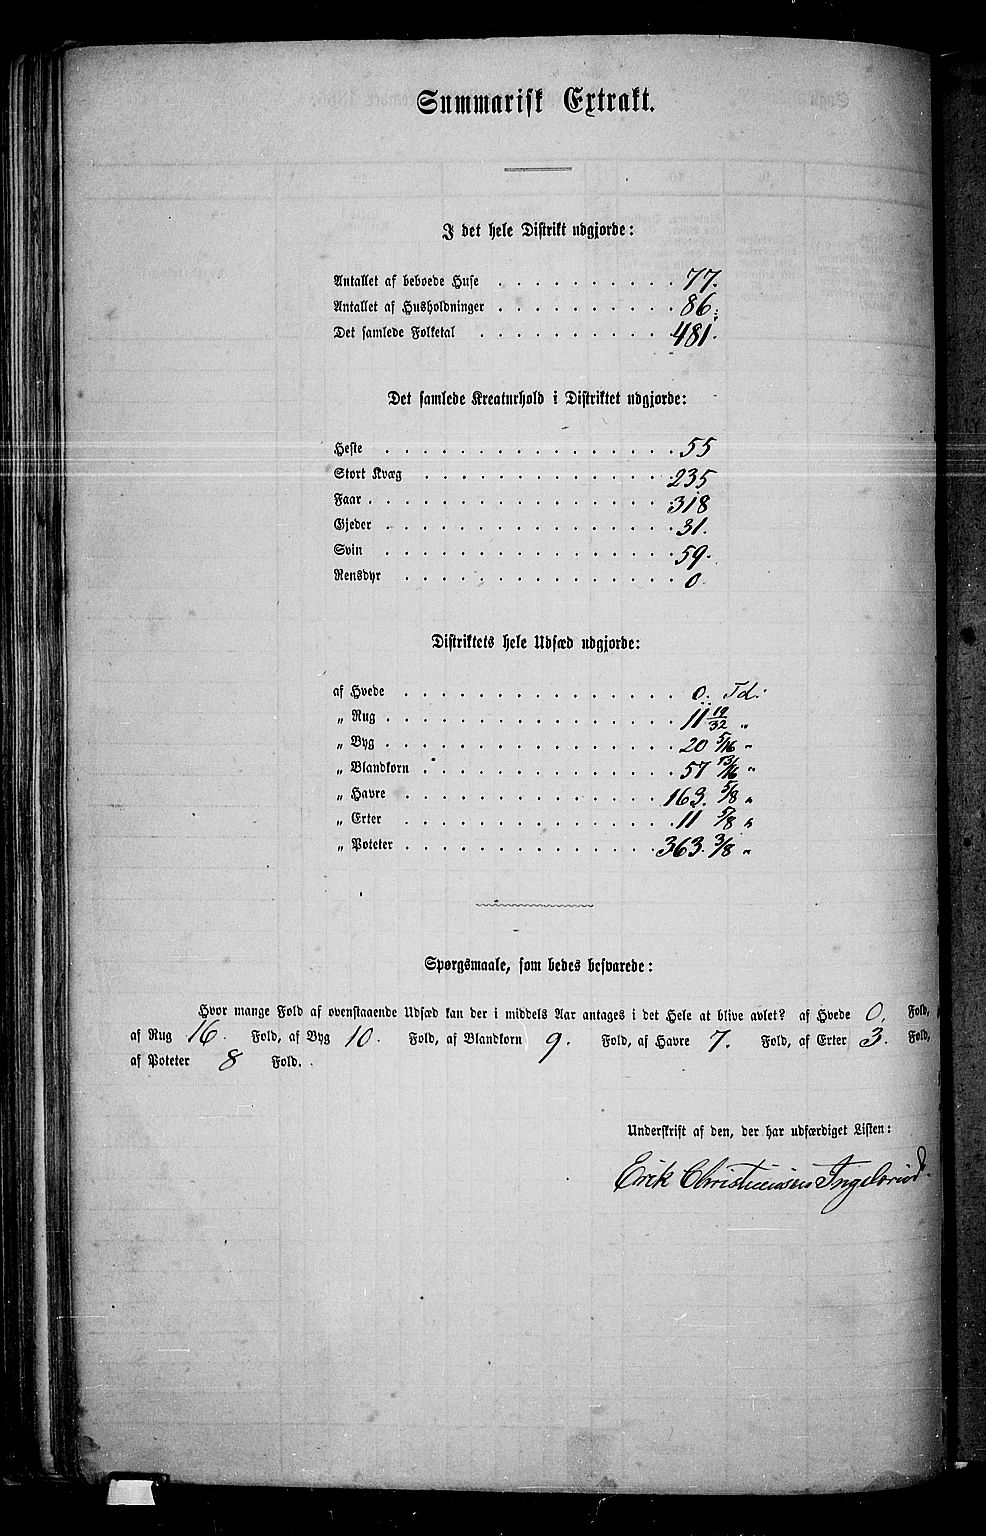 Summarisk Extrakt.
I det hele Distrikt udgjorde:
Antallet af beboede Huse . . . . . . . . . . 77.
Antallet af Husholdninger . . . . . . . . . . 86.
Det samlede Folketal . . . . . . . . . . . 481.
Det samlede Kreaturhold i Distriktet udgjorde:
Heste . . . . . . . . . . . . . . . . 55
Stort Kvæg . . . . . . . . . . . . . . 235
Faar . . . . . . . . . . . . . . . . . 318
Gjeder . . . . . . . . . . . . . . . . 31.
Svin . . . . . . . . . . . . . . . . 59.
Rensdyr . . . . . . . . . . . . . . . 0.
Distriktets hele Udsæd udgjorde:
af Hvede . . . . . . . . . . . . . . . 0. Td.
„ Rug . . . . . . . . . . . . . . . . 11 19/32 „
„ Byg . . . . . . . . . . . . . . . . 20 5/16 „
„ Blandkorn . . . . . . . . . . . . . . 57 13/16 „
„ Havre . . . . . . . . . . . . . . . 163. 5/8 „
„ Erter . . . . . . . . . . . . . . . 11 5/8 „
„ Poteter . . . . . . . . . . . . . . 363. 3/8 „
Spørgsmaale, som bedes besvarede:
Hvor mange Fold af ovenstaaende Udsæd kan der i middels Aar antages i det Hele at blive avlet? af Hvede 0. Fold,
af Rug 16. Fold, af Byg 10. Fold, af Blandkorn 9. Fold, af Havre 7. Fold, af Erter 3. Fold,
af Poteter 8 Fold.
Underskrift af den, der har udfærdiget Listen:
Erik Christiansen Ingelsrud.